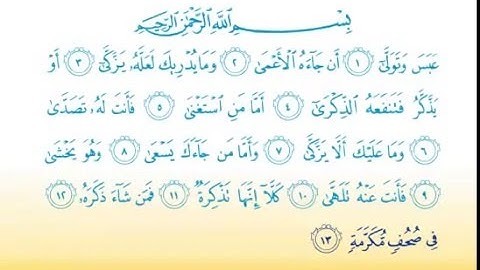 بِسْمِ اللَّهِ الرَّحْمَٰنِ الرَّحِيمِ
عَبَسَ وَتَوَلَّىٰٓ ١ أَن جَآءَهُ الْأَعْمَىٰ ٢ وَمَا يُدْرِيكَ لَعَلَّهُۥ يَزَّكَّىٰٓ ٣ أَوْ
يَذَّكَّرُ فَتَنفَعَهُ الذِّكْرَىٰٓ ٤ أَمَّا مَنِ اسْتَغْنَىٰ ٥ فَأَنتَ لَهُۥ تَصَدَّىٰ
٦ وَمَا عَلَيْكَ أَلَّا يَزَّكَّىٰ ٧ وَأَمَّا مَن جَآءَكَ يَسْعَىٰ ٨ وَهُوَ يَخْشَىٰ
٩ فَأَنتَ عَنْهُ تَلَهَّىٰ ١٠ كَلَّآ إِنَّهَا تَذْكِرَةٌ ١١ فَمَن شَآءَ ذَكَرَهُۥ ١٢
فِى صُحُفٍ مُّكَرَّمَةٍ ١٣